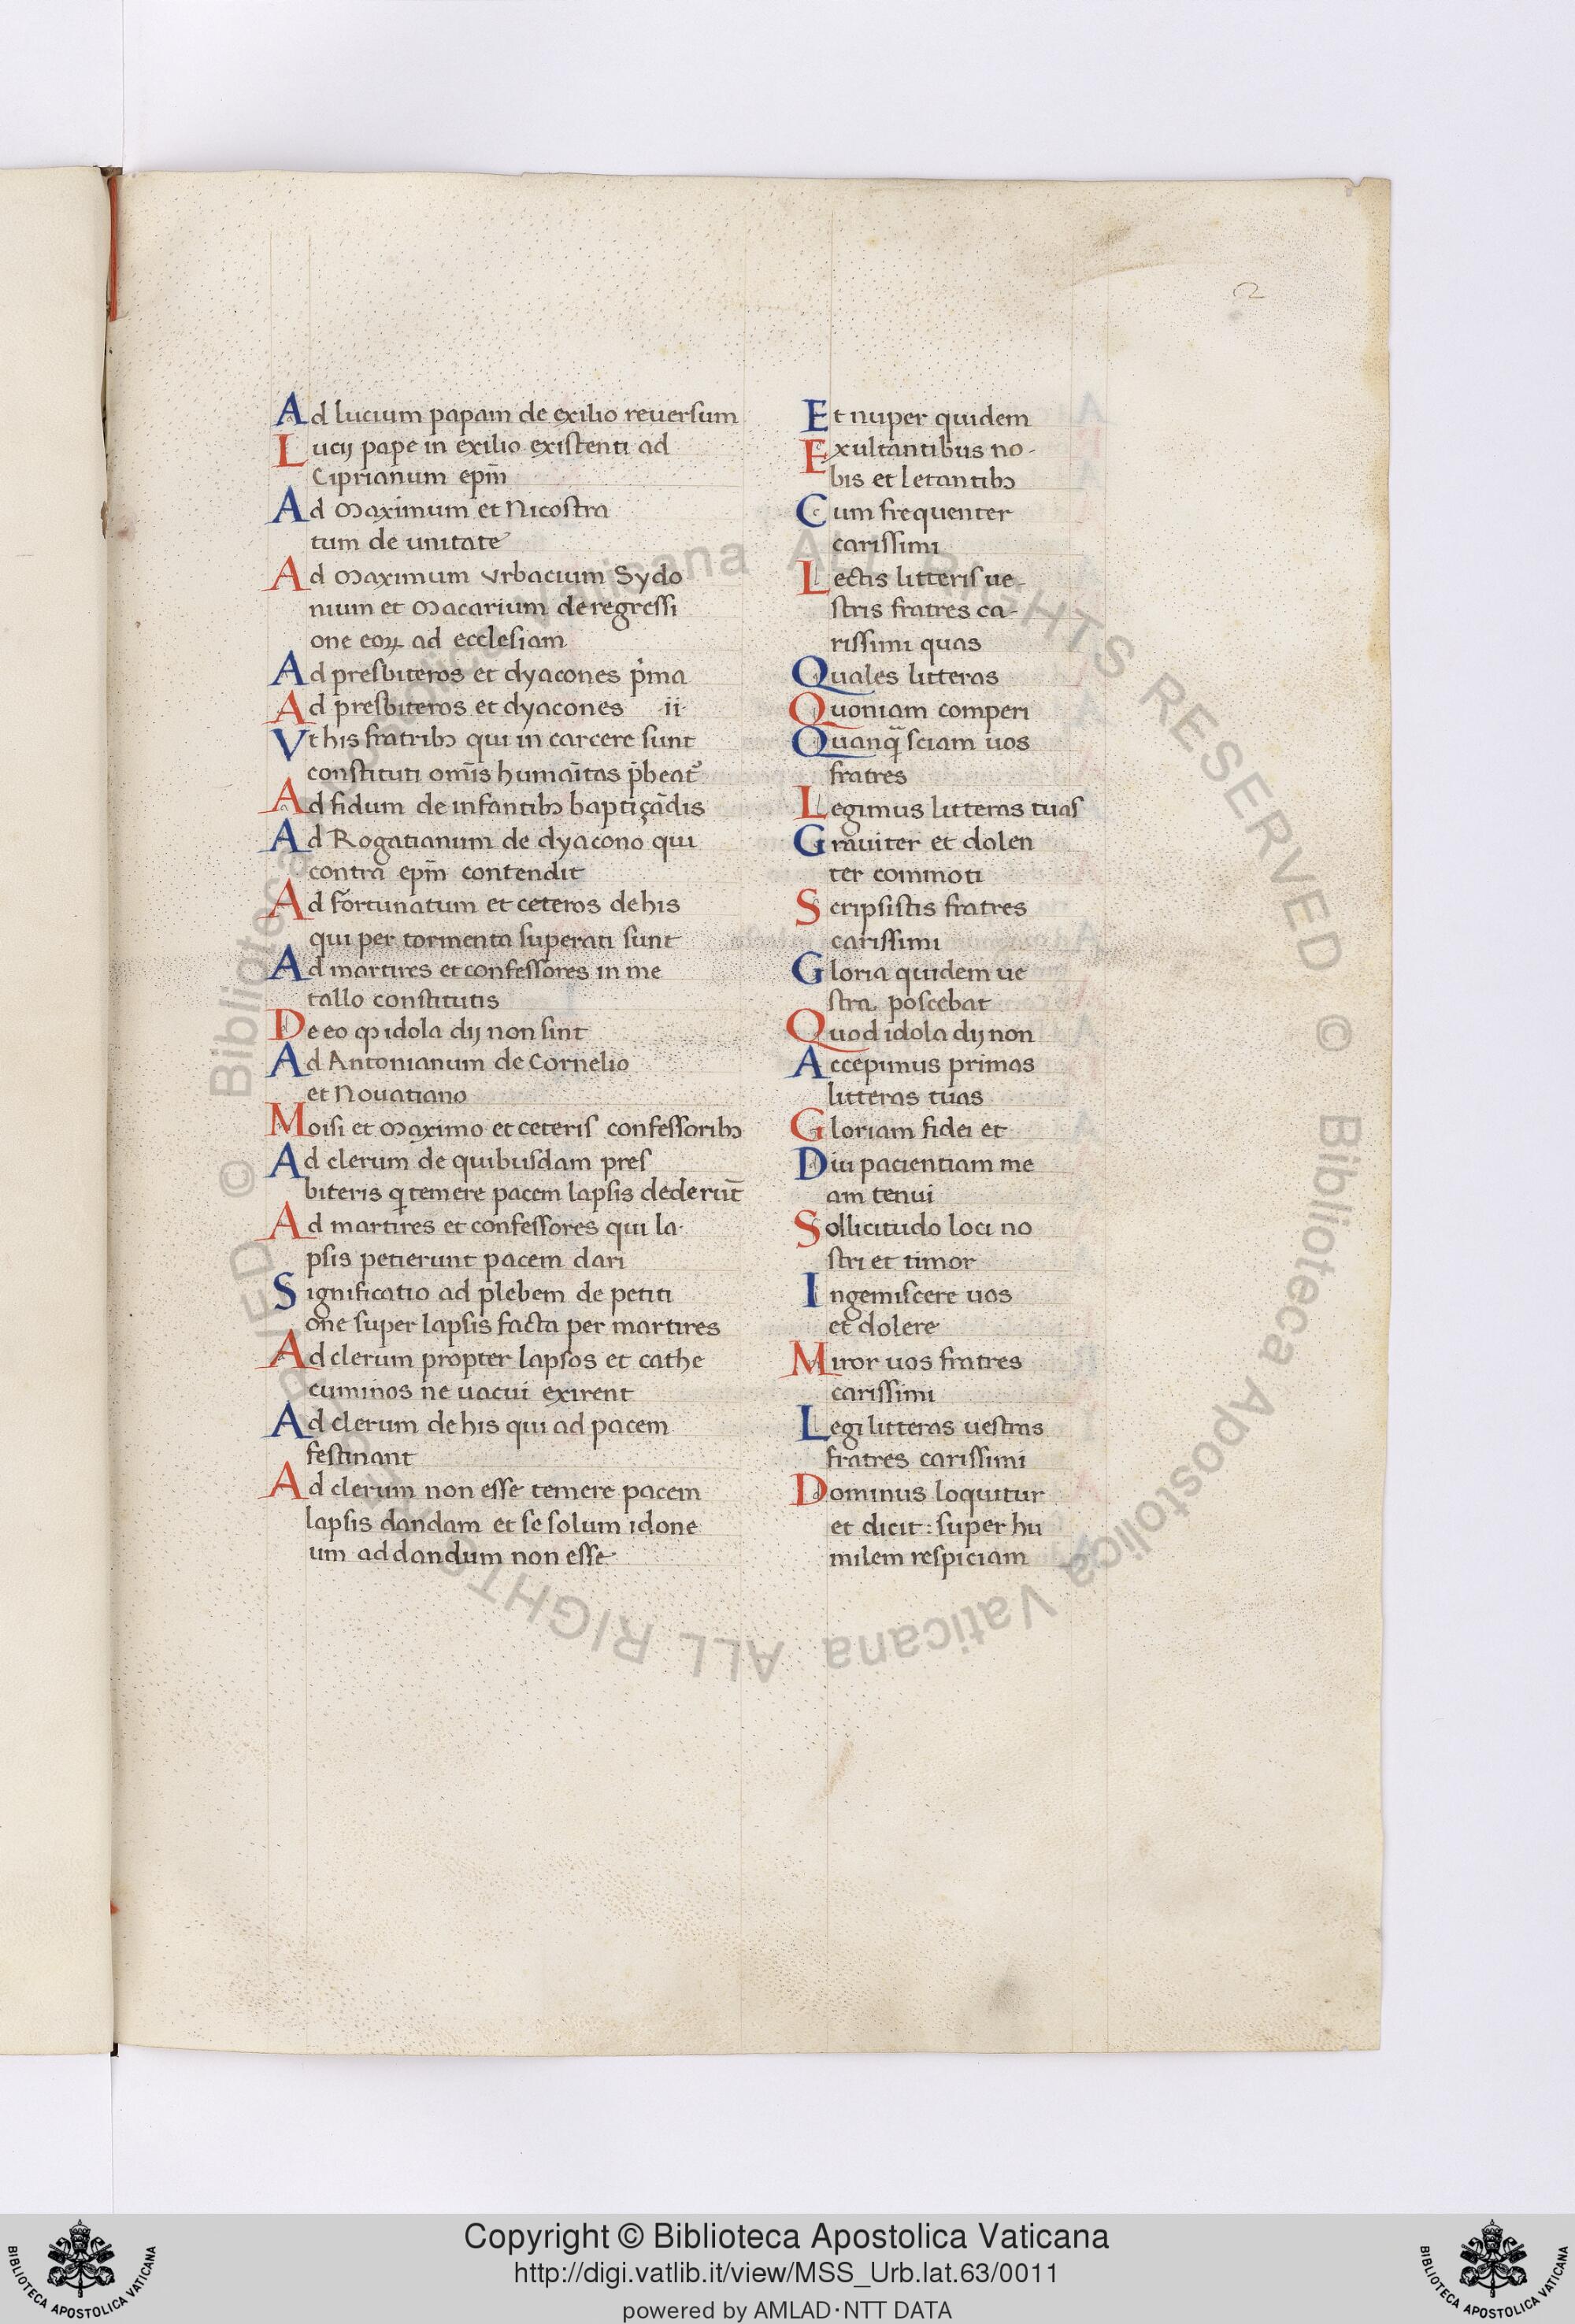 2
Ad lucium papam de exilio reuerſum
Lucij pape in exilio existenti ad
Ciprianum ep̄m
Ad Maximum et Nicoſtra
tum de unitate
Ad Maximum Vrbacium Sydo
nium et Macarium de regreſſi
one eoꝝ ad eccleſiam
Ad preſbiteros et dyacones p̍ma
Ad preſbiteros et dyacones ii·
Vt his fratribꝫ qui in carcere ſunt
constituti om̄is humāitas p̄beat᷑
Ad fidum de infantibꝫ baptiçādis
Ad Rogatianum de dyacono qui
contra ep̄m contendit
Ad fortunatum et ceteros de his
qui per tormenta ſuperati ſunt
Ad martires et confeſſores in me
tallo conſtitutis
De eo ꝙ idola dij non ſint
Ad Antonianum de Cornelio
et Nouatiano
Moiſi et Maximo et ceteriſ confeſſoribꝫ
Ad clerum de quibuſdam preſ
biteris q̍ temere pacem lapſis dederūt
Ad martires et confeſſores qui la·
pſis petierunt pacem dari
Significatio ad plebem de petiti
one ſuper lapſis facta per martires
Ad clerum propter lapſos et cathe
cuminos ne uacui exirent
Ad clerum de his qui ad pacem
feſtinant
Ad clerum non eſſe temere pacem
lapſis dandam et ſe ſolum idone
um ad dandum non eſſe
Et nuper quidem
Exultantibus no-
bis et letantibꝫ
Cum frequenter
cariſſimi
Lectis litteriſ ue-
ſtris fratres ca-
riſſimi quas
Quales litteras
Quoniam comperi
Quanq̄ ſciam uos
fratres
Legimus litteras tuaſ
Grauiter et dolen
ter commoti
Scripſiſtis fratres
cariſſimi
Gloria quidem ue
ſtra poſcebat
Quod idola dij non
Accepimus primas
litteras tuas
Gloriam fidei et
Diu pacientiam me
am tenui
Sollicitudo loci no
ſtri et timor
Ingemiſcere uos
et dolere
Miror uos fratres
cariſſimi
Legi litteras ueſtras
fratres cariſſimi
Dominus loquitur
et dicit : ſuper hu
milem reſpiciam
© Biblioteca Apostolica Vaticana ALL RIGHTS RESERVED © Biblioteca Apostolica Vaticana ALL RIGHTS RESERVED
Copyright © Biblioteca Apostolica Vaticana
http://digi.vatlib.it/view/MSS_Urb.lat.63/0011
powered by AMLAD·NTT DATA
BIBLIOTECA APOSTOLICA VATICANA
BIBLIOTECA APOSTOLICA VATICANA